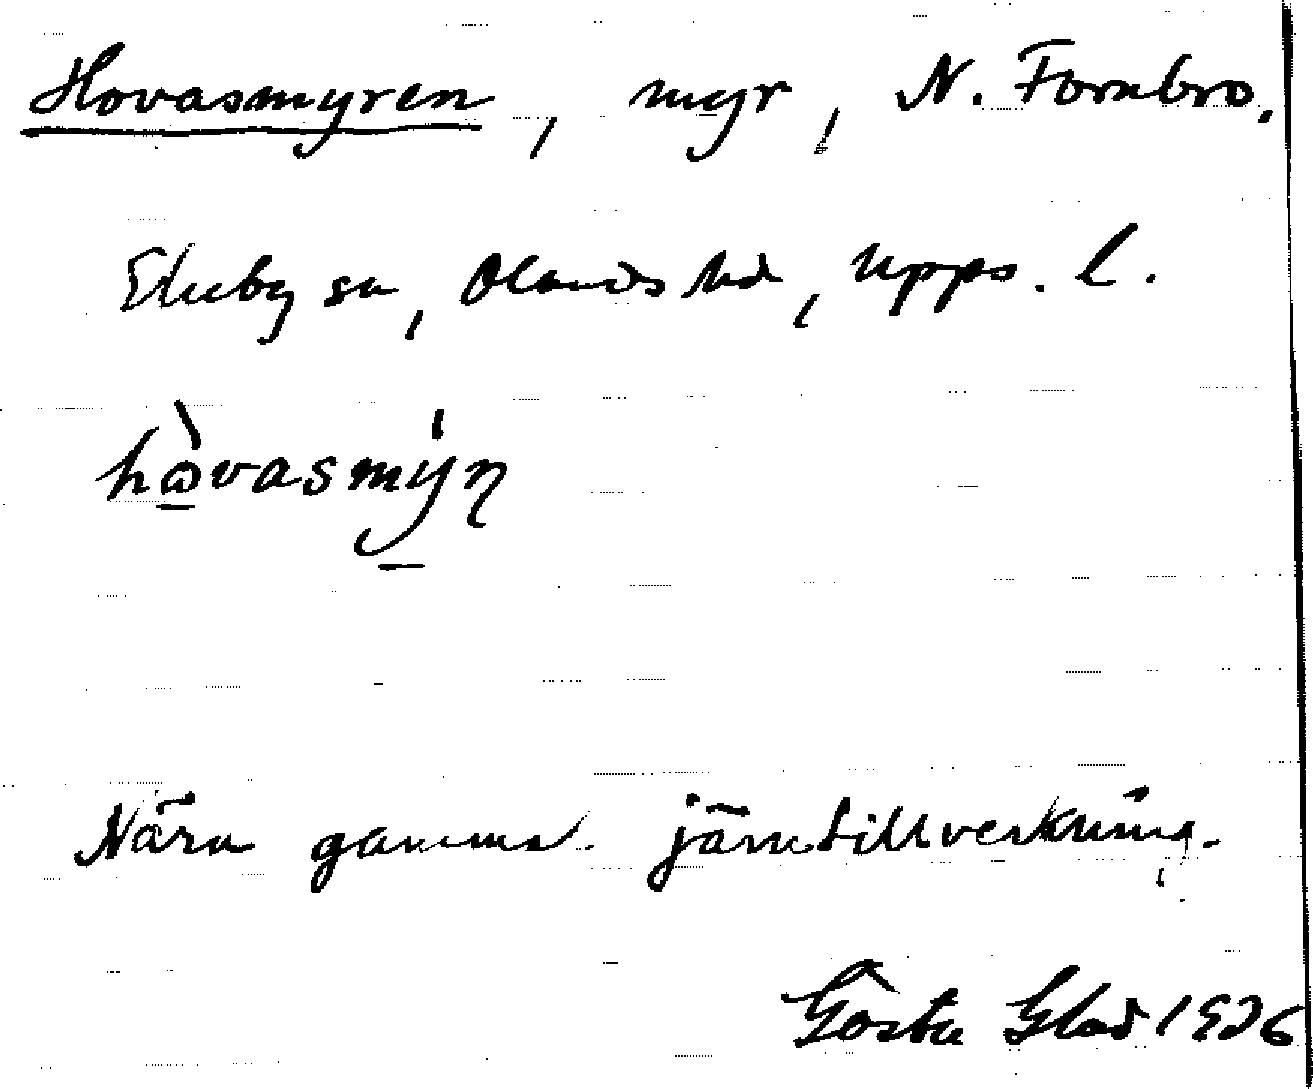 Hovasmyren, myr, N. Fornbro,
Ekeby sn, Olands hd, Upps. l.
hòvasmýn
Nära gammal järntillverkning.
Gösta Glad 1936